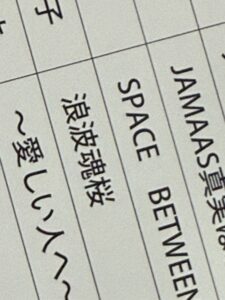 JAMAAS真実は
SPACE BETWEEN
浪波魂桜
〜愛しい人へ〜
子